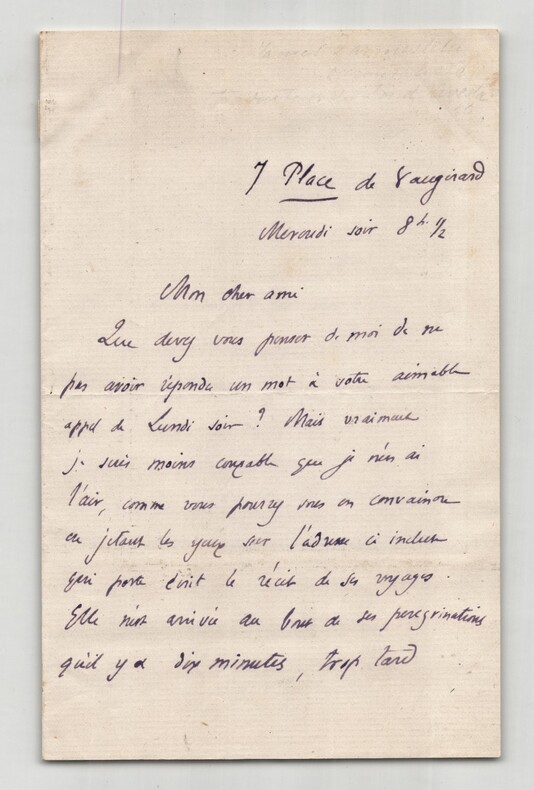 7 Place de Vaugirard
Mercredi soir 8 h. 1/2
Mon cher ami
Que devez vous penser de moi de ne
pas avoir répondu un mot à votre aimable
appel de Lundi soir ? Mais vraiment
je suis moins coupable que je n'en ai
l'air, comme vous pourrez vous en convaincre
en jetant les yeux sur l'adresse ci incluse
qui porte écrit le récit de ses voyages.
Elle n'est arrivée au bout de ses peregrinations
qu'il y a dix minutes, trop tard